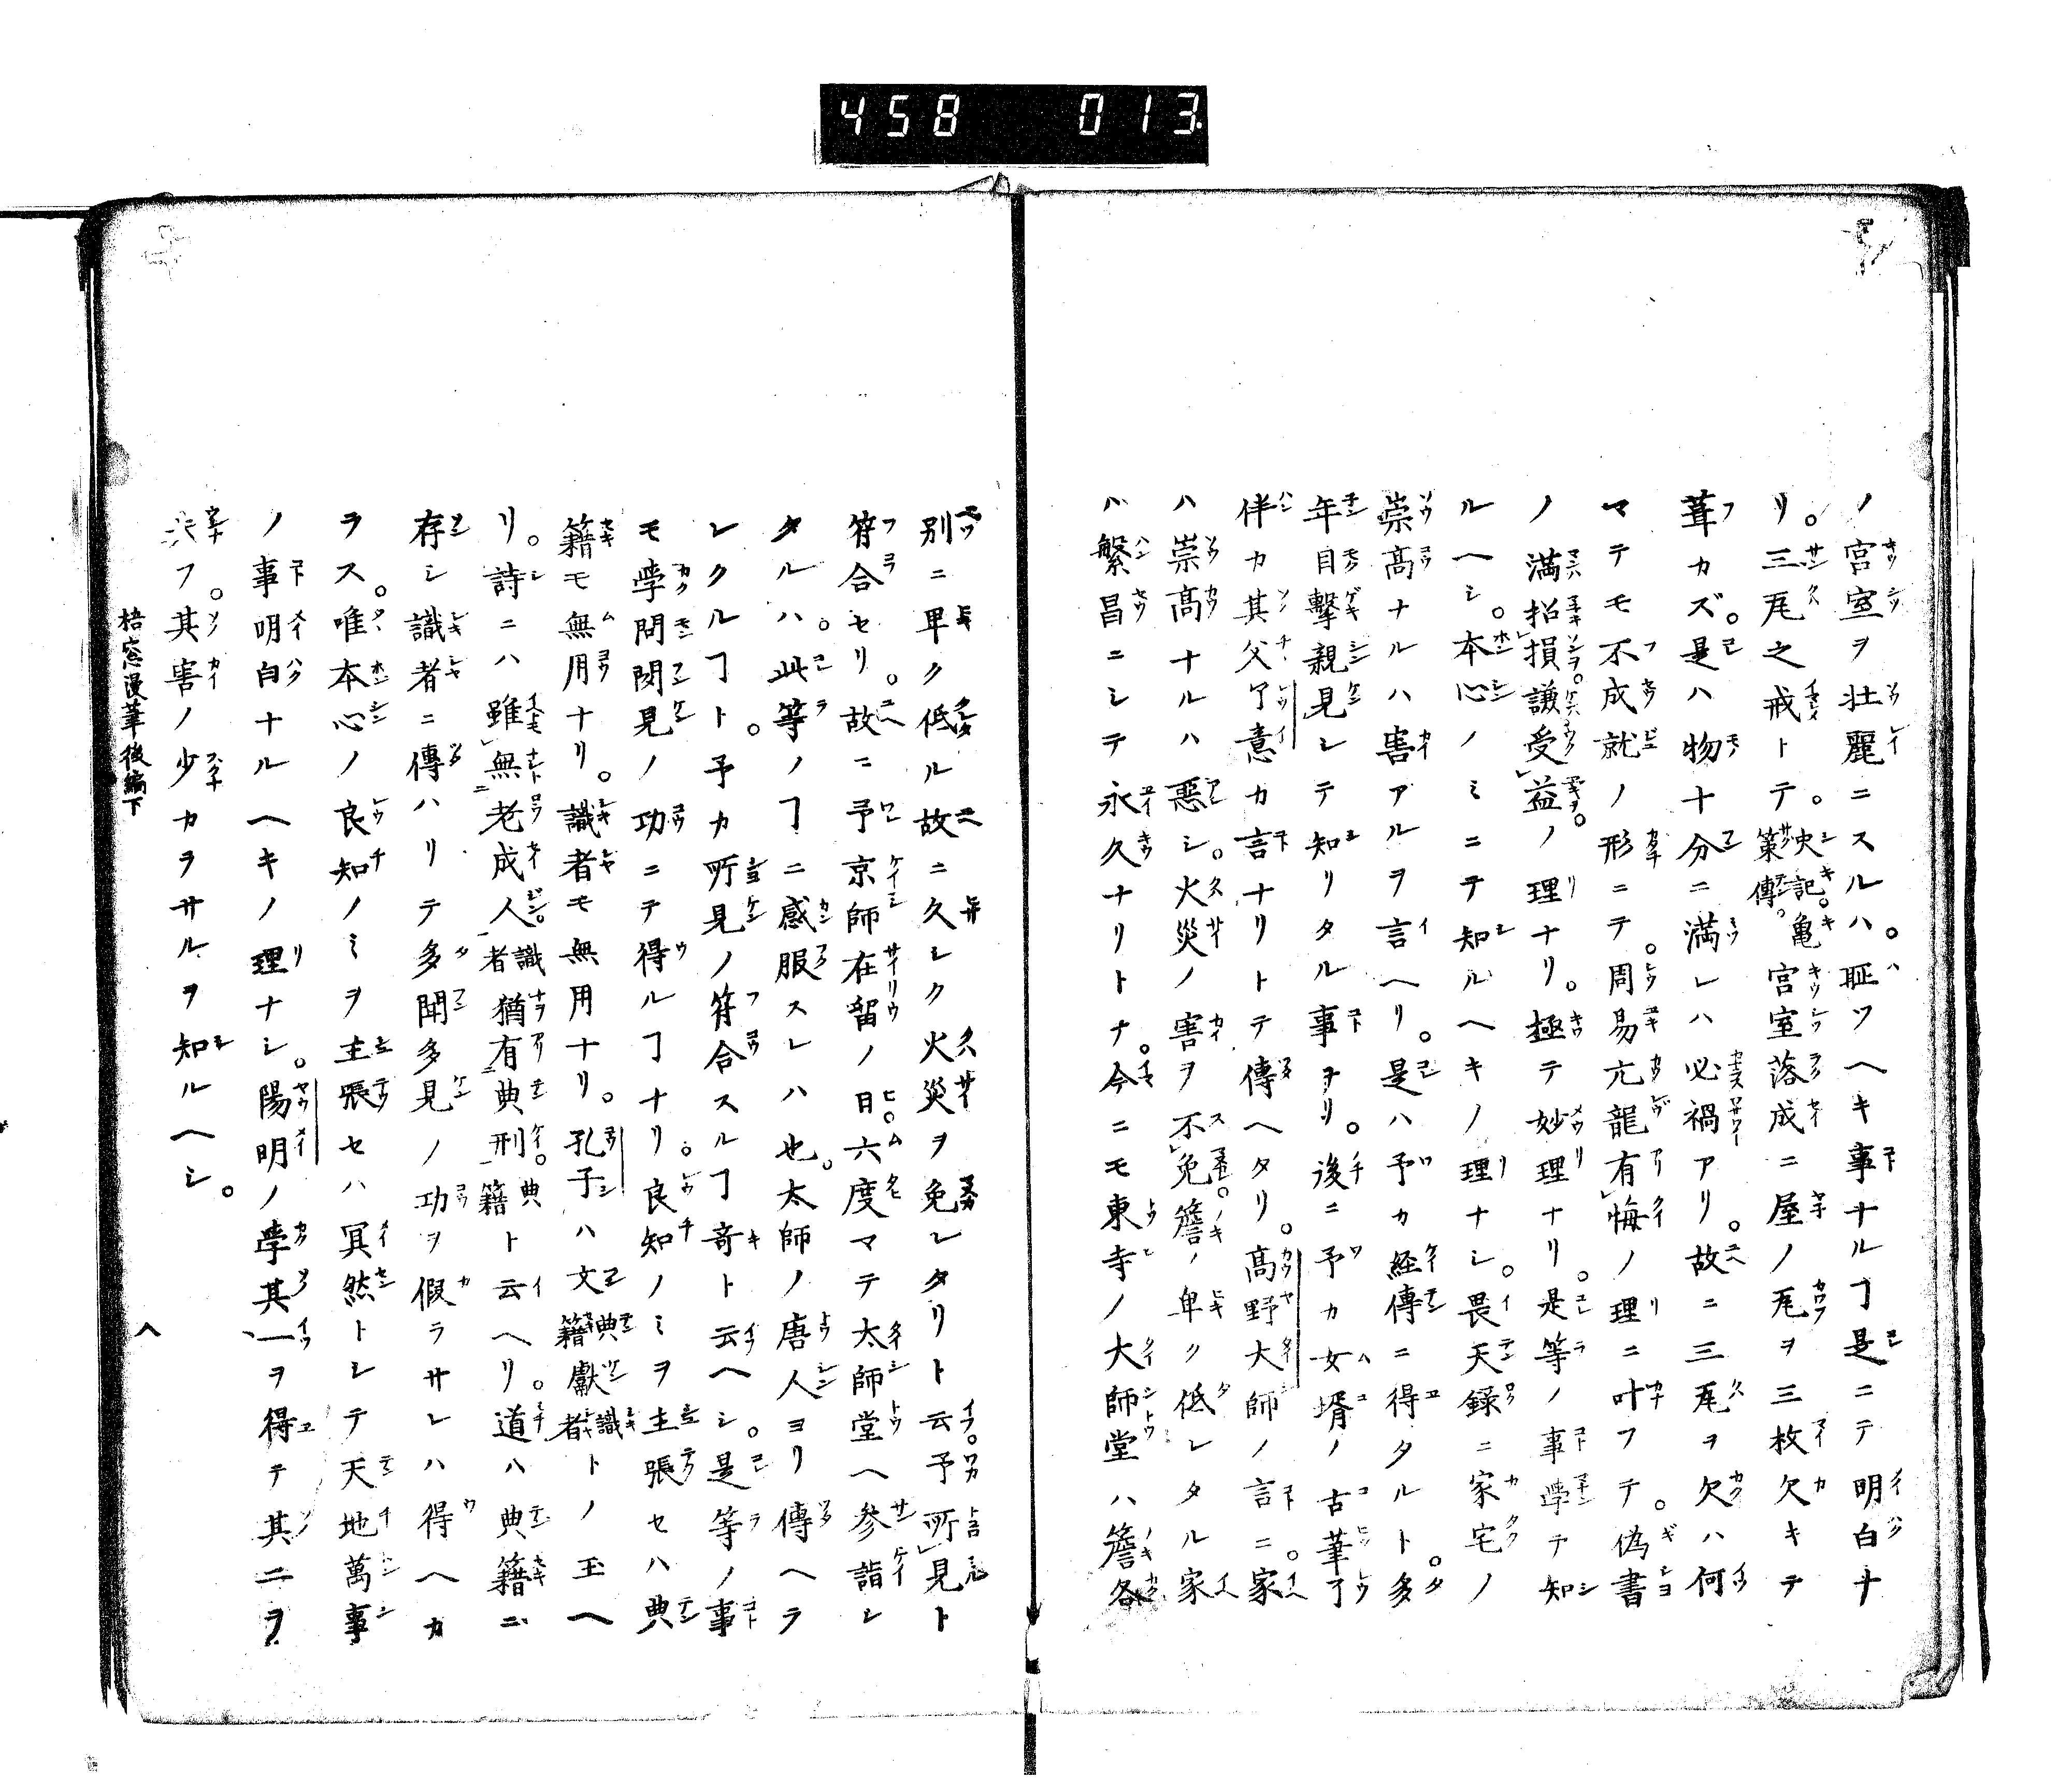 458 013
ノ宮室ヲ壮麗ニスルハ。耻ツヘキ事ナルヿ是ニテ明白ナ
リ。三瓦之戒トテ。史記。亀策傳。宮室落成ニ屋ノ瓦ヲ三枚欠キテ
葺カズ。是ハ物十分ニ満レハ必禍アリ。故ニ三瓦ヲ欠ハ何
マテモ不成就ノ形ニテ。周易亢龍有悔ノ理ニ叶フテ。偽書
ノ満招損。謙受益。ノ理ナリ。極テ妙理ナリ。是等ノ事學テ知
ルヘシ。本心ノミニテ知ルヘキノ理ナシ。畏天録ニ家宅ノ
崇高ナルハ害アルヲ言ヘリ。是ハ予カ経傳ニ得タルト。多
年目撃親見シテ知リタル事ヲリ。後ニ予カ女壻ノ古筆了
伴カ其父了意カ言ナリトテ傳ヘタリ。高野大師ノ言ニ。家
ハ崇高ナルハ惡シ。火災ノ害ヲ不免。簷ノ卑ク低レタル家
ハ繁昌ニシテ永久ナリトナ。今ニモ東寺ノ大師堂ハ簷各
別ニ卑ク低ル故ニ久シク火災ヲ免レタリト云。予所見ト
符合セリ。故ニ予京師在留ノ日。六度マテ太師堂ヘ参詣シ
タルハ。此等ノヿニ感服スレハ也。太師ノ唐人ヨリ傳ヘラ
レクルヿト。予カ所見ノ符合スルヿ奇ト云ヘシ。是等ノ事
モ學問聞見ノ功ニテ得ルヿナリ。良知ノミヲ主張セハ典
籍モ無用ナリ。識者モ無用ナリ。孔子ハ文典籍獻識者トノ玉ヘ
リ。詩ニハ雖無老成人。識者猶有典刑。典籍ト云ヘリ。道ハ典籍ニ
存シ識者ニ傳ハリテ多聞多見ノ功ヲ假ラサレハ得ヘカ
ラス。唯本心ノ良知ノミヲ主張セハ冥然トシテ天地萬事
ノ事明白ナルヘキノ理ナシ。陽明ノ學其一ヲ得テ其二ヲ
失フ。其害ノ少カラサルヲ知ルヘシ。
梧窓漫筆後編下
八